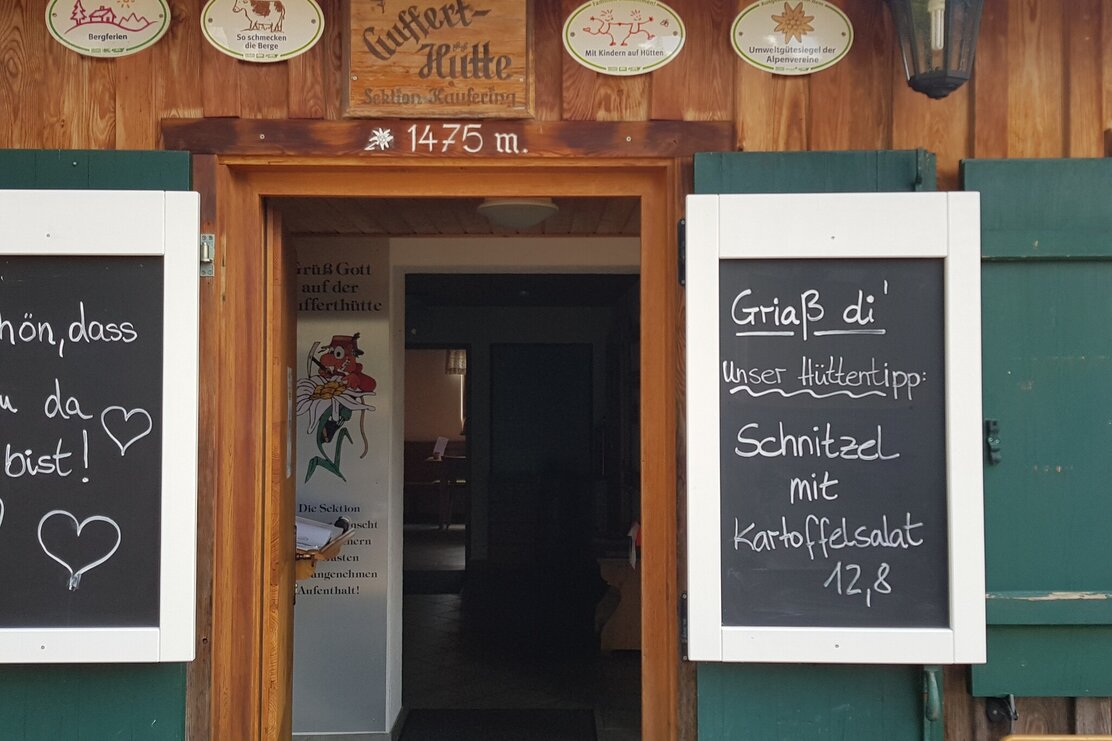 Bergferien
So schmecken
die Berge
Guffert-
Hütte
Sektion Kaufering
Mit Kindern auf Hütten
Umweltgütesiegel der
Alpenvereine
1475 m.
hön, dass
u da
bist!
Grüß Gott
auf der
ufferthütte
Die Sektion
nscht
nern
ästen
angenehmen
Aufenthalt!
Griaß di'
Unser Hüttentipp:
Schnitzel
mit
Kartoffelsalat
12,8